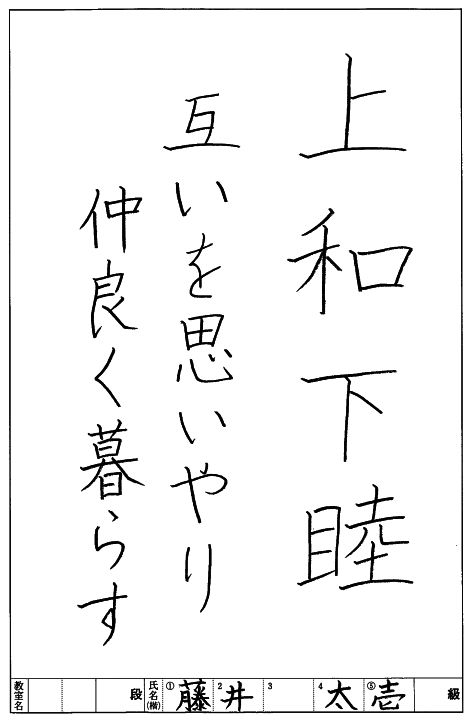 上和下睦
互いを思いやり
仲良く暮らす
教室名 段 氏名(楷) ① 藤 2 井 3 4 太 ⑤ 壱 級